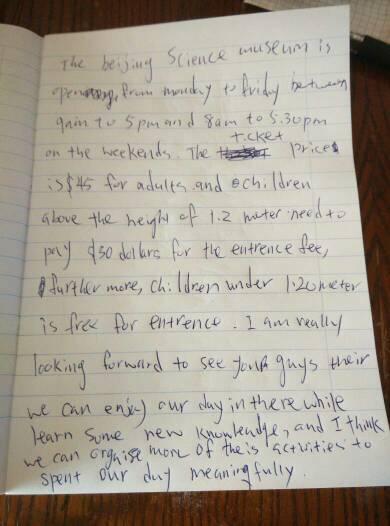 The beijing Science museum is
open, from monday to friday between
9am to 5pm and 8am to 5.30pm
on the weekends. The ticket price
is $45 for adults and children
above the height of 1.2 meter need to
pay $30 dollars for the entrence fee,
further more, children under 1.20 meter
is free for entrence. I am really
looking forward to see your guys their
we can enjoy our day in there while
learn some new knowledge, and I think
we can orgaise more of theis activities to
spent our day meaningfully.